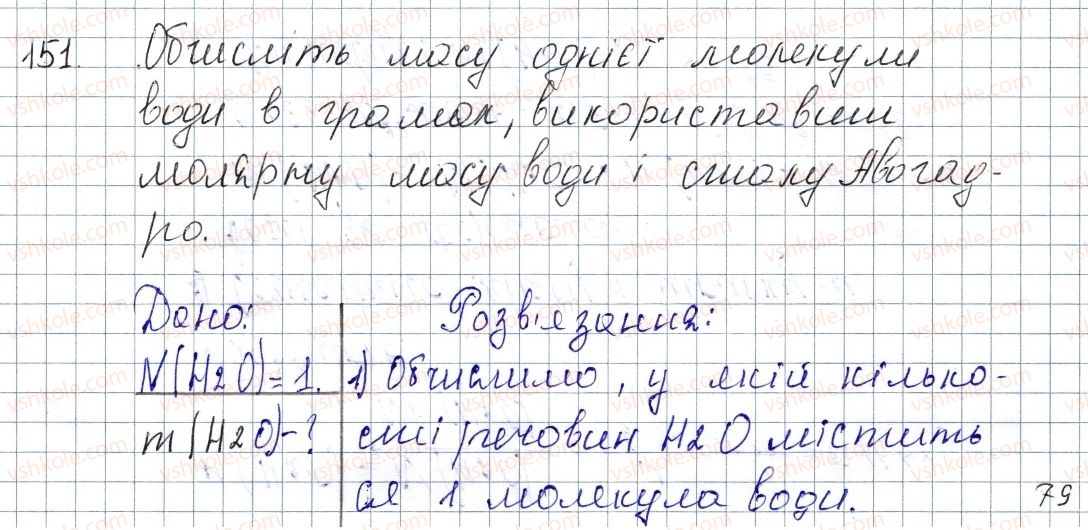 151. Обчисліть масу однієї молекули
води в грамах, використавши
молярну масу води і сталу Авогад-
ро.
Дано:
N(H2O)=1.
m(H2O)-?
Розв'язання:
1) Обчислимо, у якій кілько-
сті речовин H2O містить
ся 1 молекула води.
79